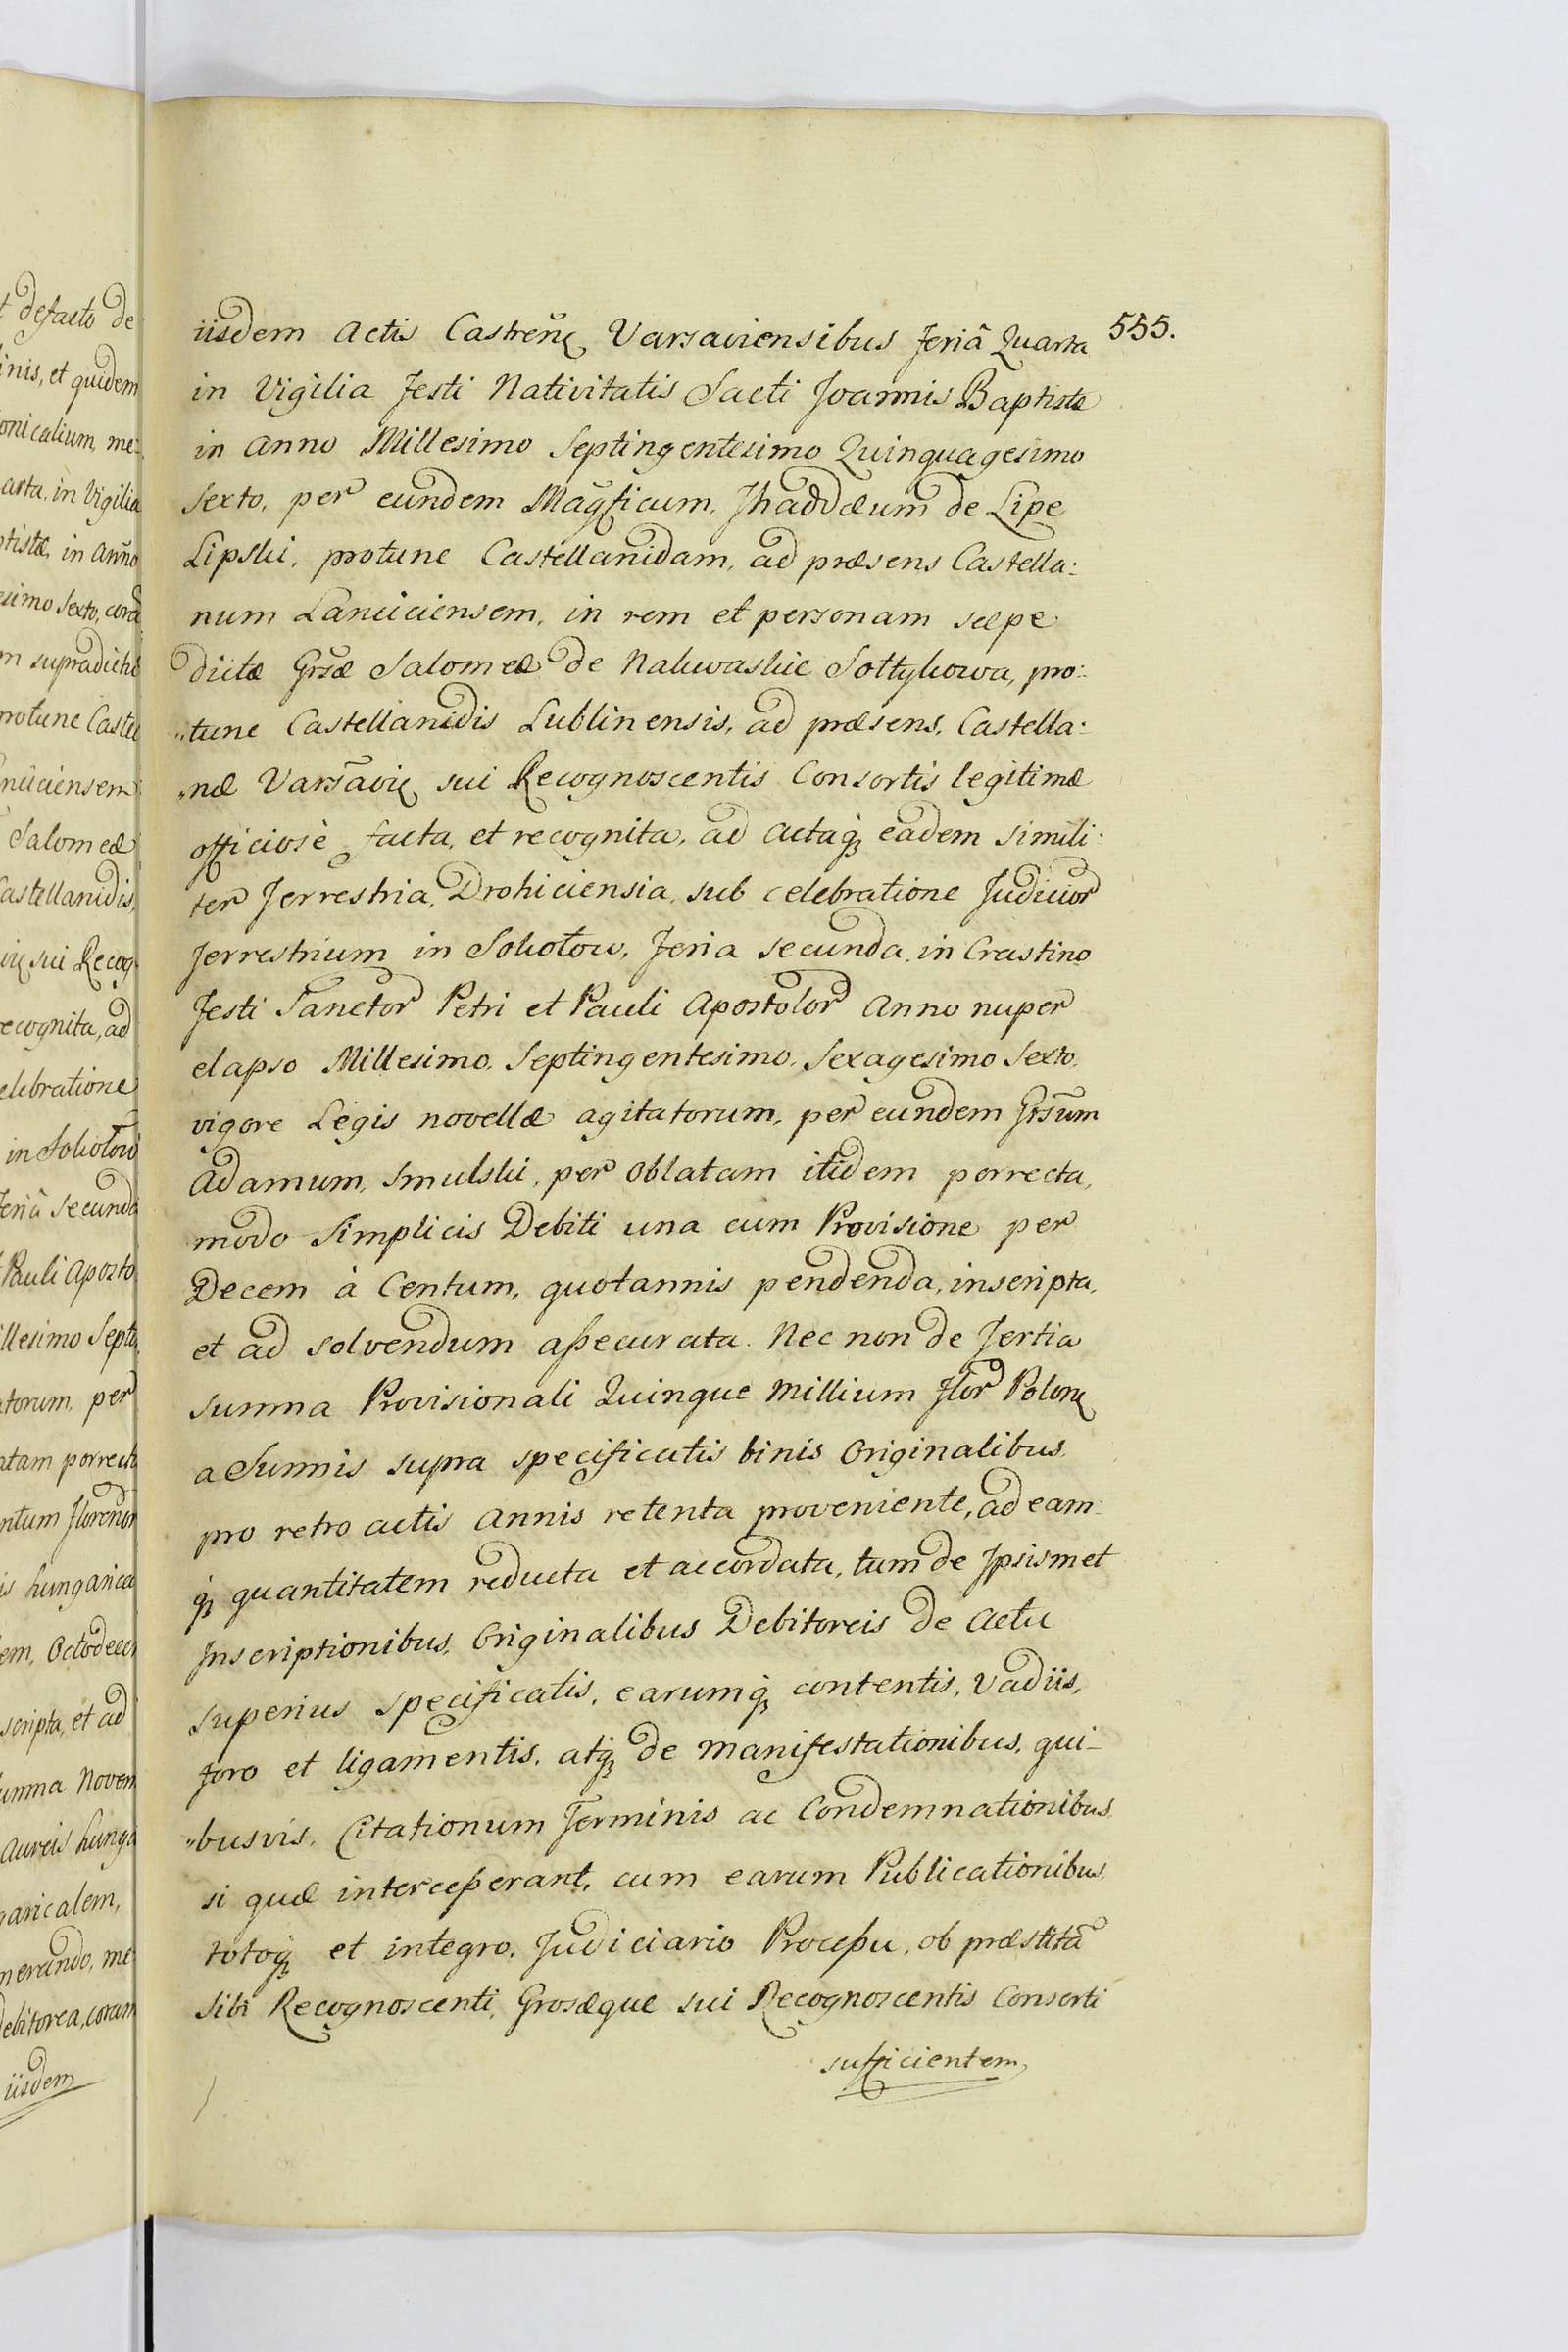 t defacto de
inis, et quidem
onicalium, me:
arta, in Vigilia
tistæ, in Anno
esimo Sexto, cora
m supradicte
rotunc Castel
nciciensem
Salomeæ
Castellanidis,
iæ sui Recog
recognita, ad
elebratione
in Sokołow
Feriâ Secunda
Pauli Aposto
illesimo Septi
atorum, per
atam porrecta
ntum Florenor
is hungarica
em, Octodecim
scripta, et ad
umma Novem
Aureis hunga
garicalem,
merando, me
Debitorea, coram
iisdem
555.
iisdem Actis Castren̄ Varsaviensibus Feriâ Quarta
in Vigilia Festi Nativitatis Sacti Joannis Baptistæ
in Anno Millesimo Septingentesimo Quinquagesimo
Sexto, per eundem Mag̃ficum, Thaddæum de Lipe
Lipski, protunc Castellanidam, ad præsens Castella:
num Lanciciensem, in rem et personam sæpe
dictæ Grsæ Salomeæ de Nakwaskie Sołtykowa, pro:
„tunc Castellanidis Lublinensis, ad præsens, Castella:
„næ Varsaviæ sui Recognoscentis Consortis legitimæ
officiosè facta, et recognita, ad actaq̃ eadem simili:
ter Terrestria, Drohiciensia, sub celebratione Judicior̃
Terrestrium in Sokołow, Feria Secunda, in Crastino
Festi Sanctor̃ Petri et Pauli Apostolor̃ Anno nuper
elapso Millesimo, Septingentesimo, Sexagesimo Sexto,
vigore Legis novellæ agitatorum, per eundem Grs̃um
Adamum, Smulski, per Oblatam itidem porrecta,
modo Simplicis Debiti una cum Provisione per
Decem à Centum, quotannis pendenda, inscripta,
et ad solvendum aßecurata. Nec non de Tertia
Summa Provisionali Quinque Millium Flor̃ Polon̄
a Summis supra specificatis binis Originalibus
pro retro actis Annis retenta proveniente, ad eam:
q̃ quantitatem reducta et accordata, tum de Ipsismet
Inscriptionibus, Originalibus Debitoreis de Actu
superius specificatis, earumq̃ contentis, Vadiis,
foro et ligamentis, atq̃ de manifestationibus, qui-
„busvis, Citationum Terminis ac Condemnationibus
si quæ interceßerant, cum earum Publicationibus
totoq̃ et integro, Judiciario Proceßu, ob præstitã
Sibi Recognoscenti, Grosæque sui Recognoscentis Consorti
sufficientem